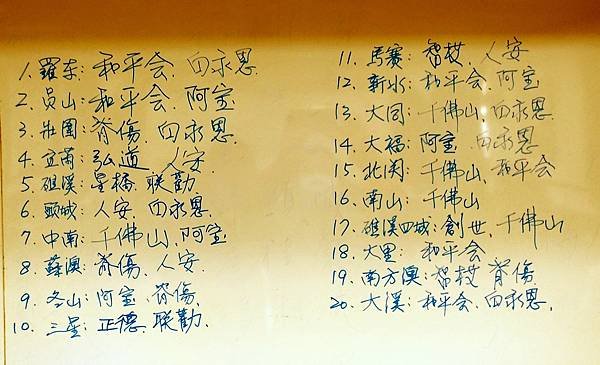 1. 羅东: 和平会、田永恩.
2. 员山: 和平会、阿宝
3. 壯圍: 脊傷、田永恩.
4. 宜蘭: 弘道、人安.
5. 礁溪: 星橋、联勸.
6. 頭城: 人安、田永恩.
7. 中南: 千佛山、阿宝
8. 蘇澳: 脊傷、人安.
9. 冬山: 阿宝、脊傷.
10. 三星: 正德、联勸.
11. 馬赛: 智技、人安
12. 新水: 和平会、阿宝
13. 大同: 千佛山、田永恩.
14. 大福: 阿宝、田永恩.
15. 北関: 千佛山、和平会
16. 南山: 千佛山
17. 礁溪四城: 創世、千佛山
18. 大里: 和平会
19. 南方澳: 智技、脊傷
20. 大溪: 和平会、田永恩.